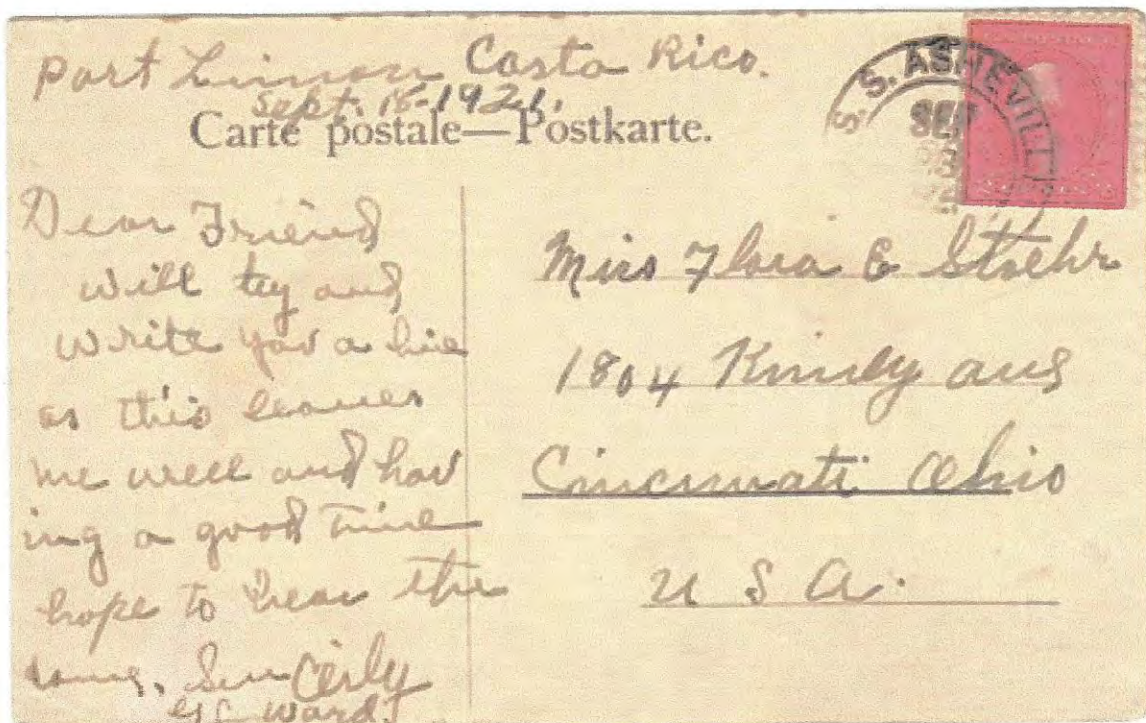 Port Limon Costa Rico.
Sept. 18-1921.
Carte postale—Postkarte.
S. S. ASHEVILL
SEP
Dear Friend
will try and
write you a line
as this leaves
me well and hav
ing a good time
hope to hear the
same. Sincerly
Ward
Miss Flora E Stsehr
1804 Kinney ave
Cincinnati Ohio
U S A.